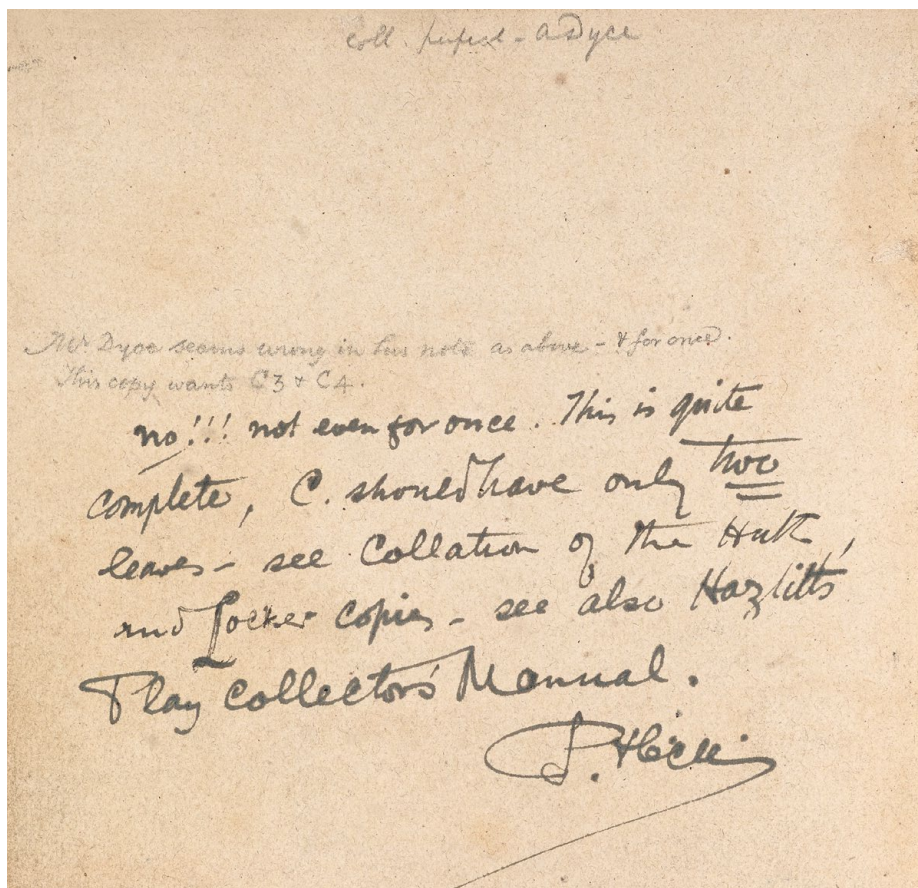 coll. perfect - A Dyce
Mr Dyce seems wrong in his note as above - & for once.
This copy wants C3 & C4.
no!!! not even for once. This is quite
complete, C. should have only two
leaves - see Collation of the Huth,
and Locker copies - see also Hazlitt's
Play Collector's Manual.